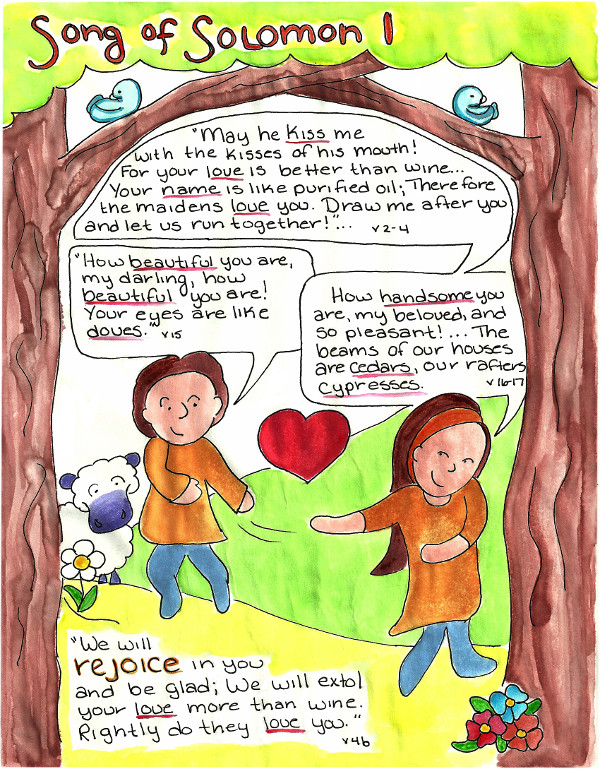 Song of Solomon 1
"May he Kiss me
with the kisses of his mouth!
For your love is better than wine...
Your name is like purified oil; Therefore
the maidens love you. Draw me after you
and let us run together!"...
v 2-4
"How beautiful you are,
my darling, how
beautiful you are!
Your eyes are like
doves."
v 15
How handsome you
are, my beloved, and
so pleasant! ... The
beams of our houses
are cedars, our rafters
cypresses.
v 16-17
"We will
rejoice in you
and be glad; We will extol
your love more than wine.
Rightly do they love you."
v 4b